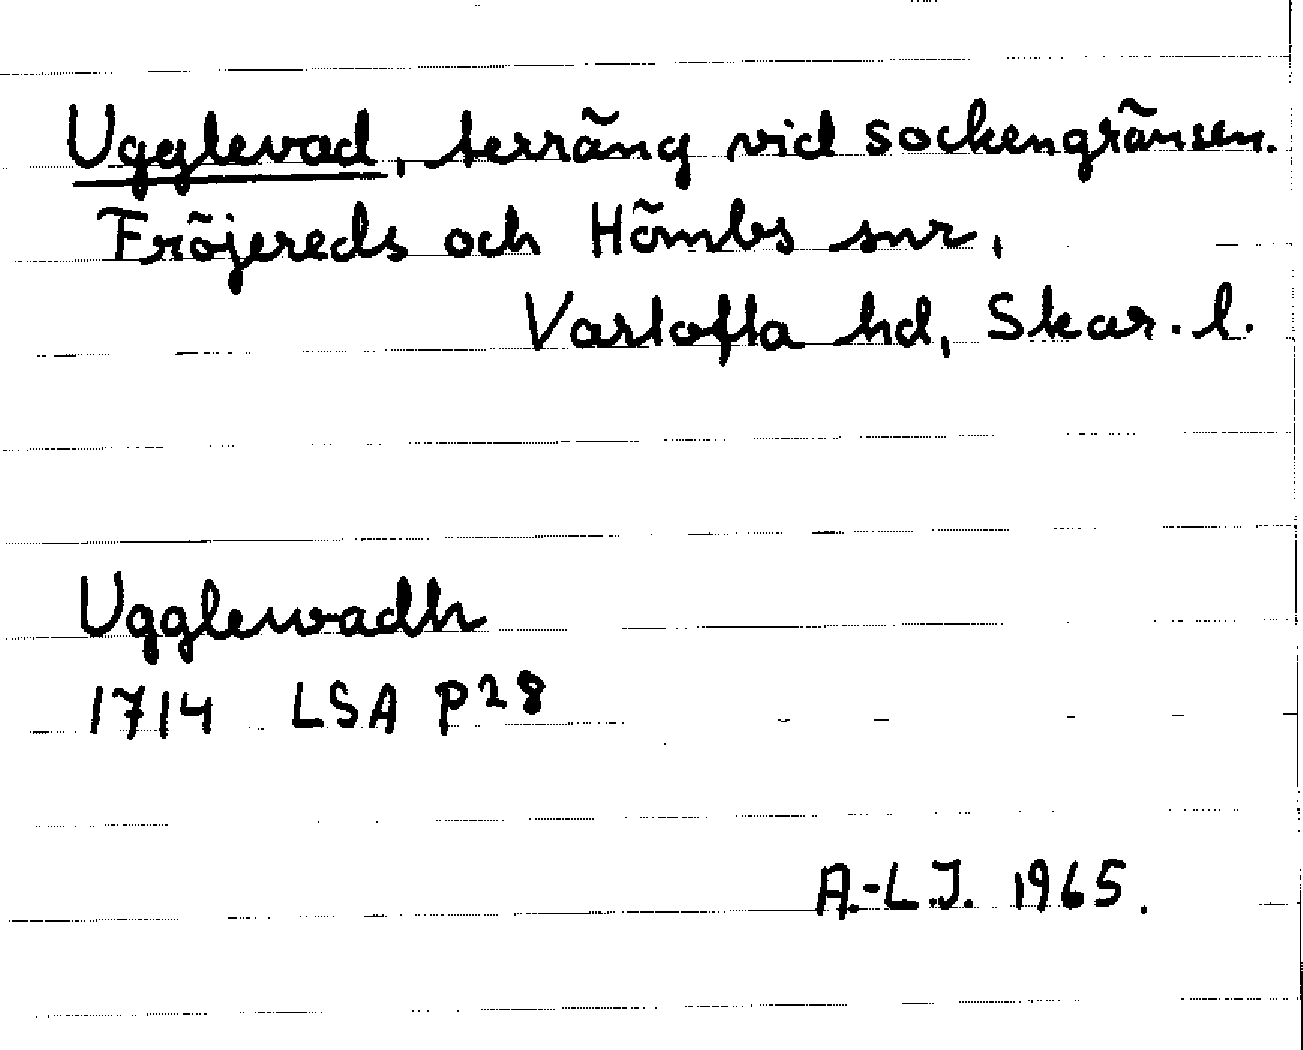 Ugglevad, terräng vid sockengränsen.
Fröjereds och Hömbs snr,
Vartofta hd, Skar. l.
Ugglewadh
1714 LSA P28
A.-L.J. 1965.